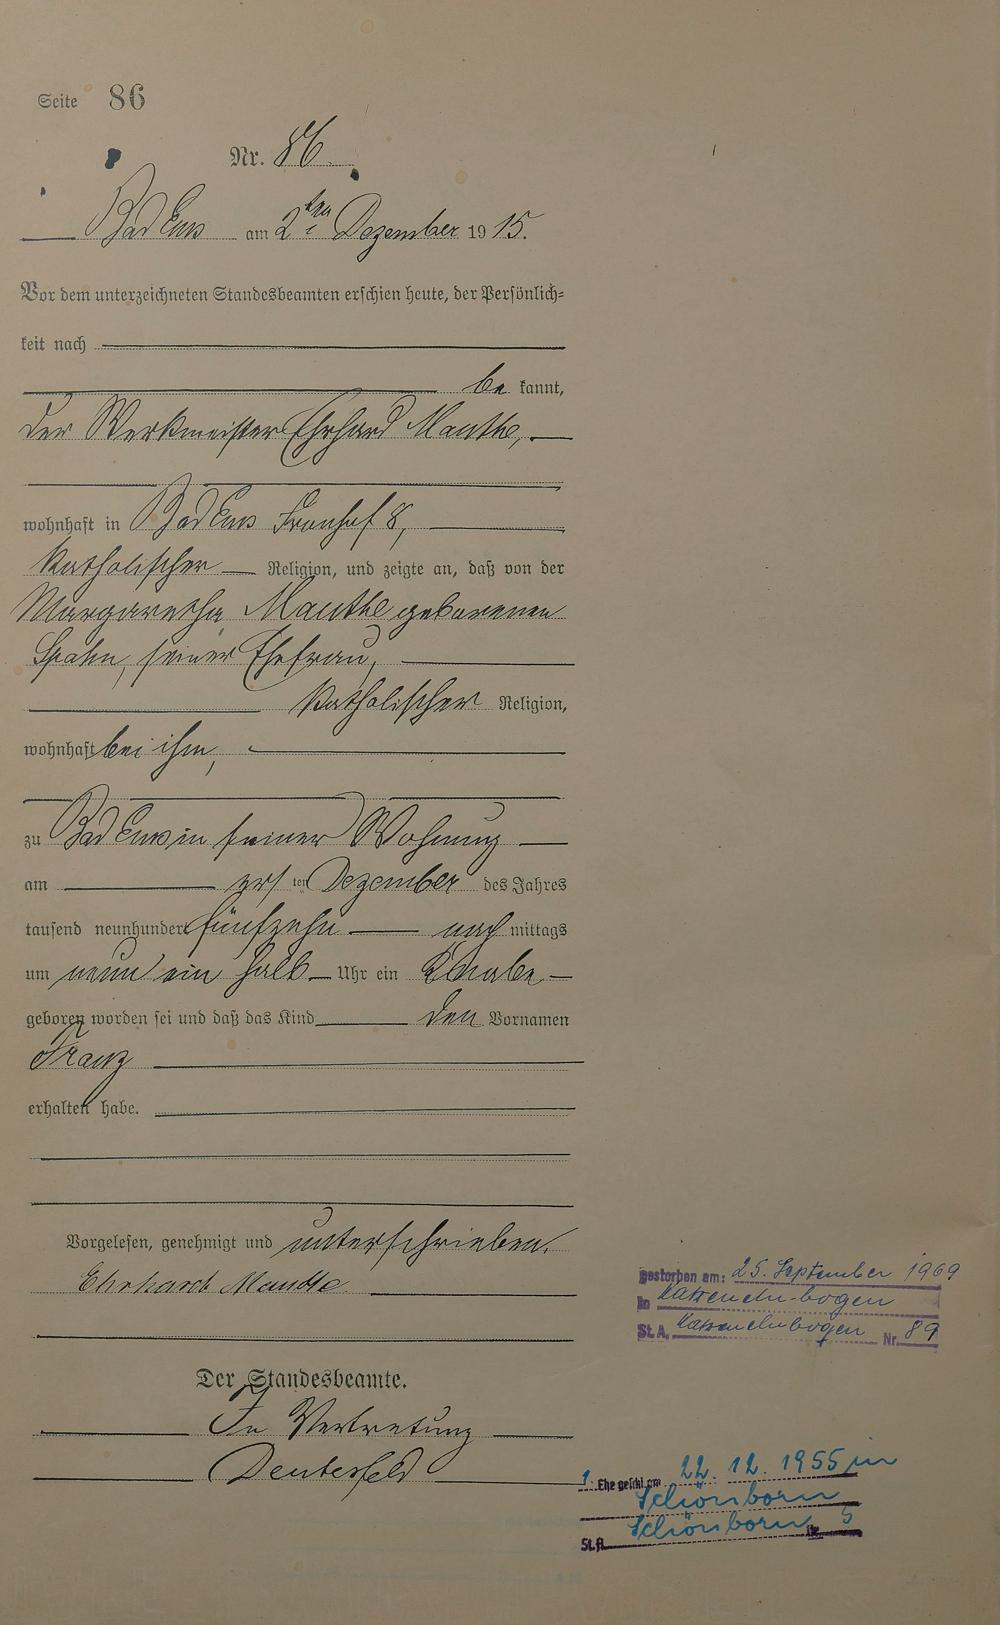 Seite 86
Nr. 86.
Bad Ems am 2ten Dezember 1915.
Vor dem unterzeichneten Standesbeamten erschien heute, der Persönlich-
keit nach
be kannt,
der Werkmeister Ehrhard Manthe,
wohnhaft in Bad Ems Fronhof 8,
katholischer Religion, und zeigte an, daß von der
Margaretha Manthe geborenen
Spahn, seiner Ehefrau,
katholischer Religion,
wohnhaft bei ihm,
zu Bad Ems in seiner Wohnung
am ersten Dezember des Jahres
tausend neunhundert fünfzehn nach mittags
um neun ein halb Uhr ein Knabe
geboren worden sei und daß das Kind den Vornamen
Franz
erhalten habe.
Vorgelesen, genehmigt und unterschrieben.
Ehrhard Manthe
Der Standesbeamte.
In Vertretung
gestorben am: 25. September 1969
in Katzenelnbogen
St.A. Katzenelnbogen Nr. 89
1. Ehe geschl. am 22. 12. 1955 in
Schönborn
St.A. Schönborn Nr. 5